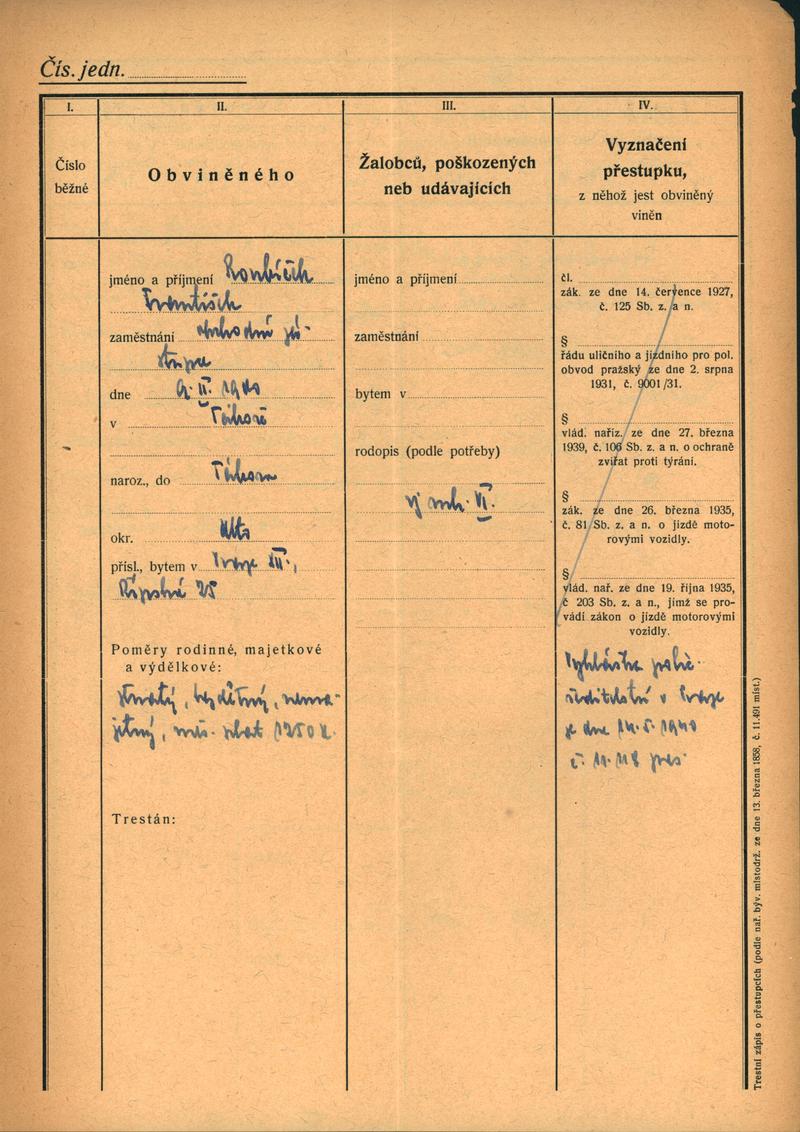 Čís. jedn.
I.
Číslo
běžné
II.
Obviněného
III.
Žalobců, poškozených
neb udávajících
IV.
Vyznačení
přestupku,
z něhož jest obviněný
viněn
jméno a příjmení
František
zaměstnání obchodní
dne
v
naroz., do
okr.
přísl., bytem v Praze XII.,
25
Poměry rodinné, majetkové
a výdělkové:
ženatý, bezdětný, nema-
jetný, měs. plat 1250 K.
Trestán:
jméno a příjmení
zaměstnání
bytem v
rodopis (podle potřeby)
VI.
čl.
zák. ze dne 14. července 1927,
č. 125 Sb. z. a n.
§
řádu uličního a jízdního pro pol.
obvod pražský ze dne 2. srpna
1931, č. 9001/31.
§
vlád. naříz. ze dne 27. března
1939, č. 106 Sb. z. a n. o ochraně
zvířat proti týrání.
§
zák. ze dne 26. března 1935,
č. 81 Sb. z. a n. o jízdě moto-
rovými vozidly.
§
vlád. nař. ze dne 19. října 1935,
č 203 Sb. z. a n., jímž se pro-
vádí zákon o jízdě motorovými
vozidly.
Vyhláška polic.
ředitelství v Praze
ze dne 14.5.1940
pres.
Trestní zápis o přestupcích (podle nař. býv. místodrž. ze dne 13. března 1858, č. 11.491 míst.)